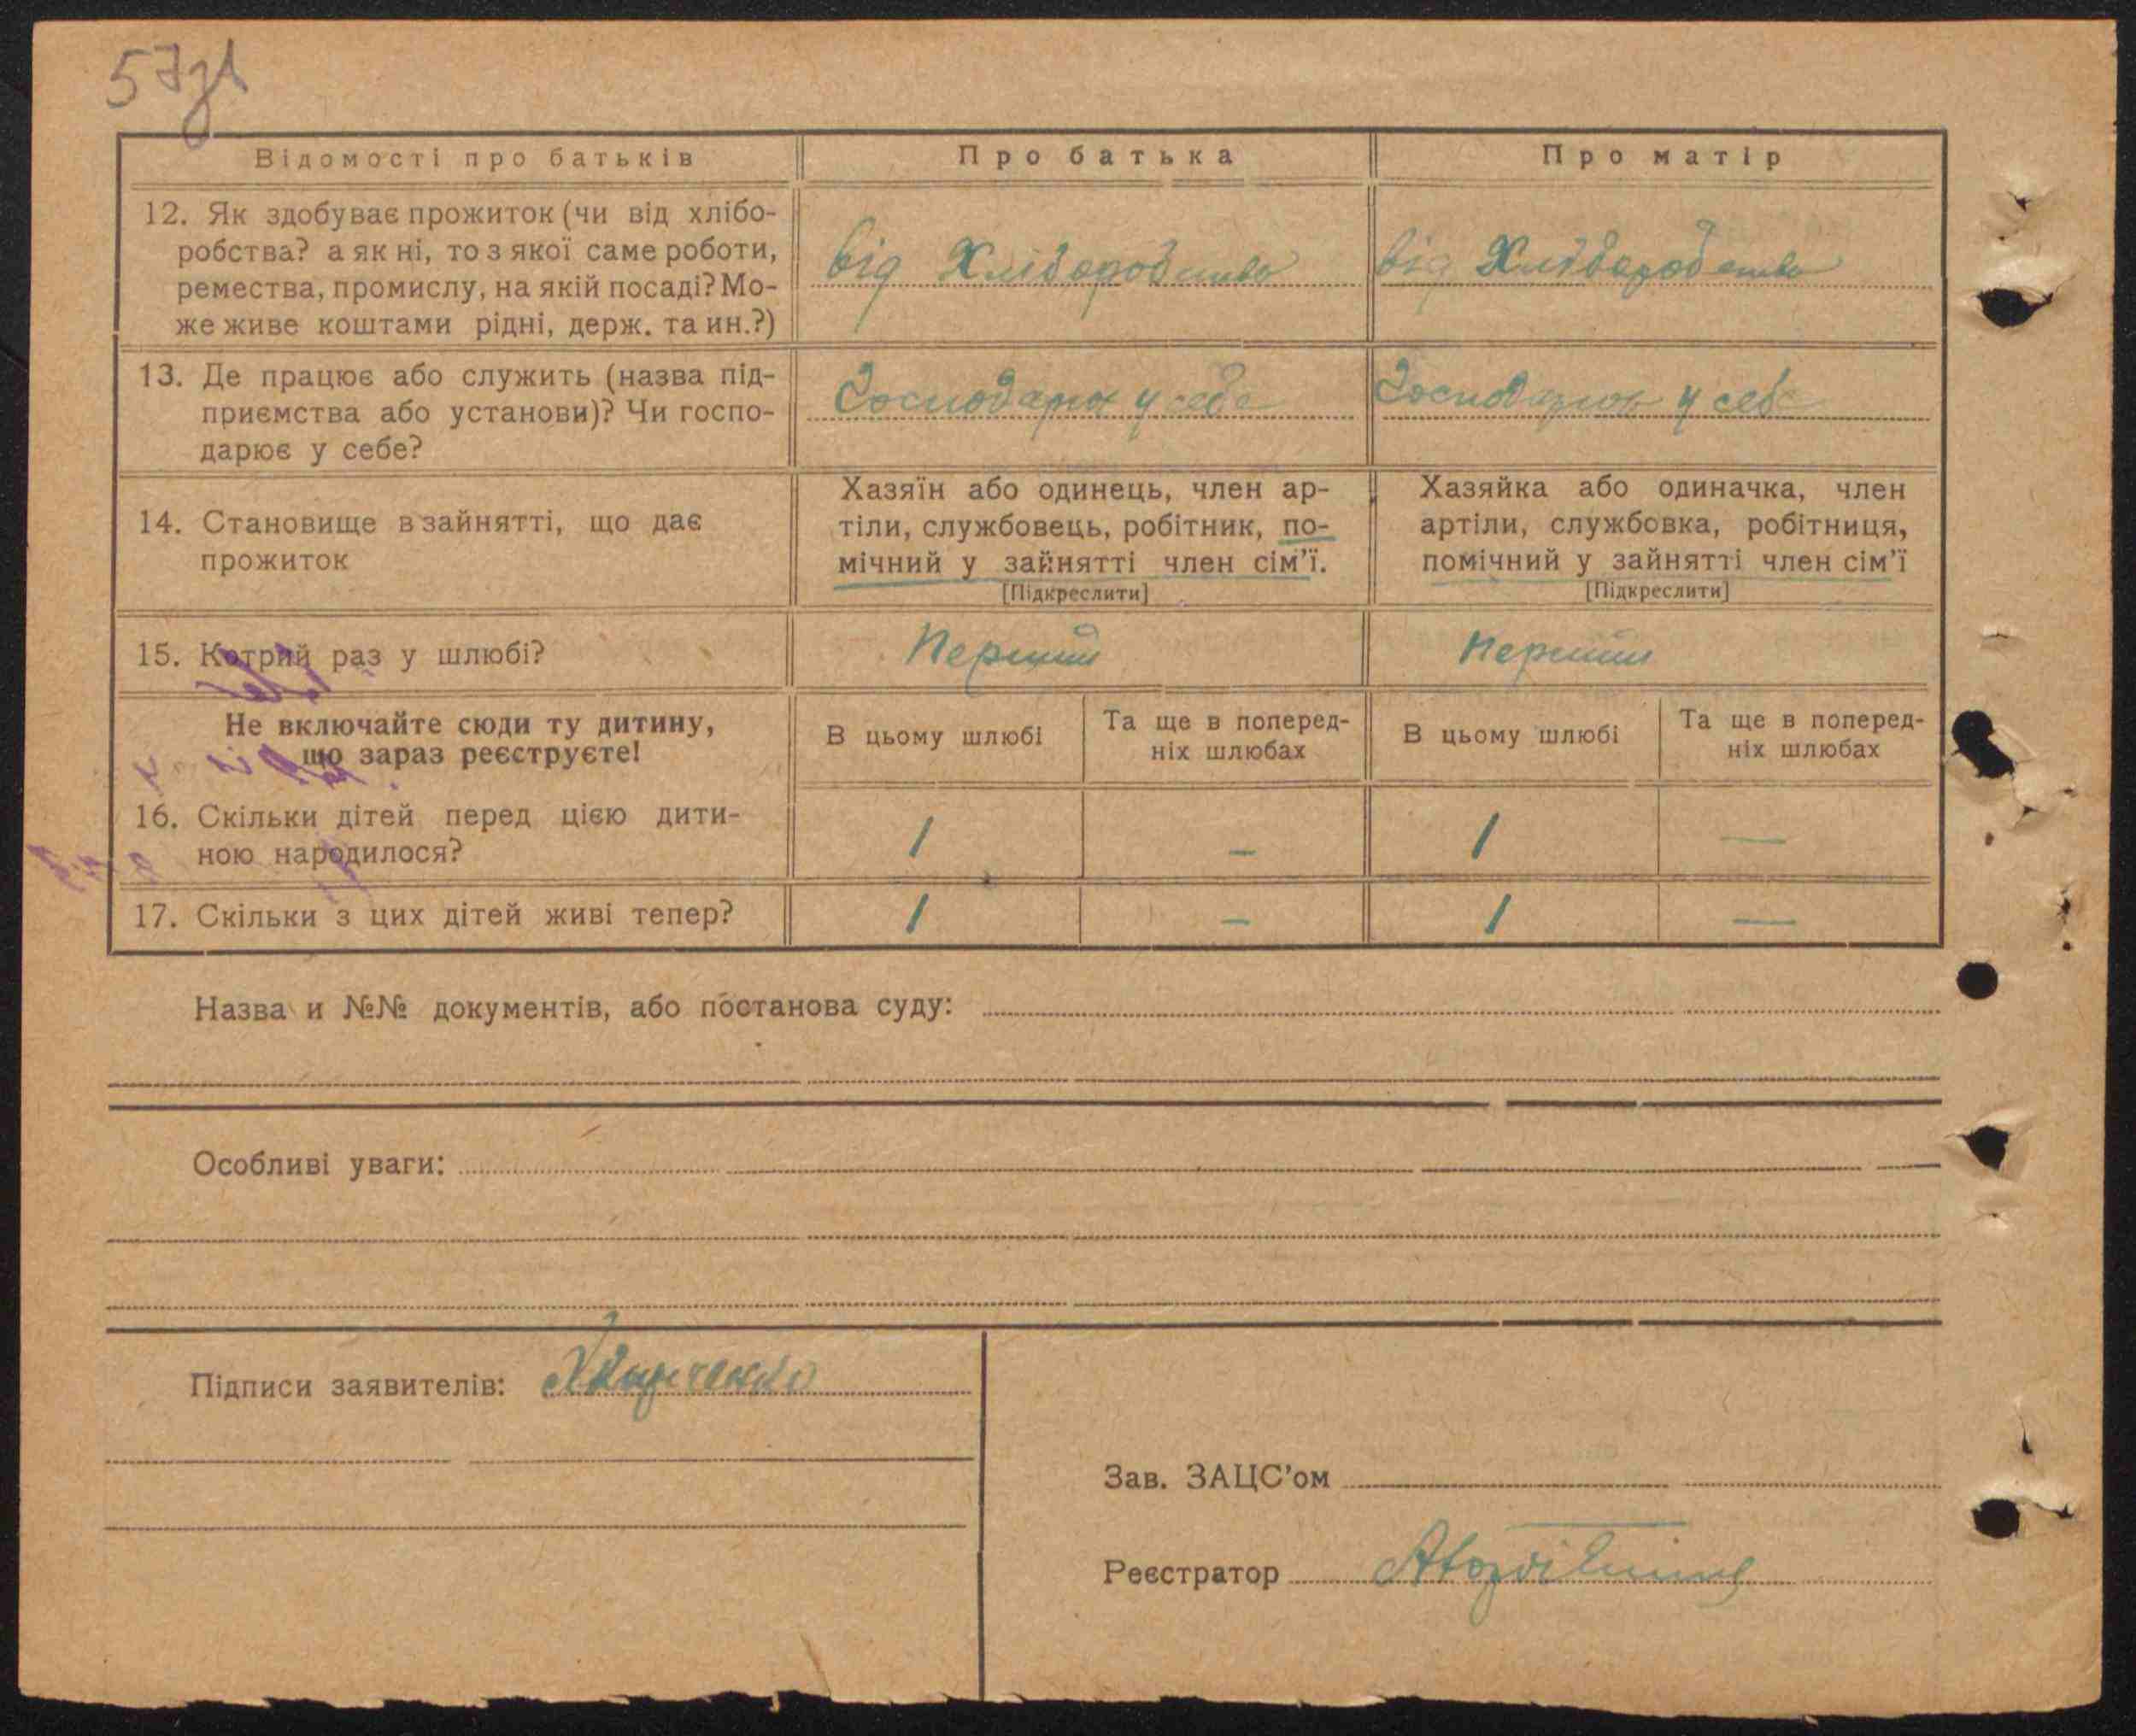 57зв
Відомості про батьків
Про батька
Про матір
12. Як здобуває прожиток (чи від хлібо-
робства? а як ні, то з якої саме роботи,
ремества, промислу, на якій посаді? Мо-
же живе коштами рідні, держ. та ин.?)
від Хліборобства
від Хліборобства
13. Де працює або служить (назва під-
приємства або установи)? Чи госпо-
дарює у себе?
Господарює у себе
Господарює у себе
14. Становище в зайнятті, що дає
прожиток
Хазяїн або одинець, член ар-
тіли, службовець, робітник, по-
мічний у зайнятті член сім'ї.
[Підкреслити]
Хазяйка або одиначка, член
артіли, службовка, робітниця,
помічний у зайнятті член сім'ї
[Підкреслити]
15. Котрий раз у шлюбі?
Перший
Перший
Не включайте сюди ту дитину,
що зараз реєструєте!
В цьому шлюбі
Та ще в поперед-
ніх шлюбах
В цьому шлюбі
Та ще в поперед-
ніх шлюбах
16. Скільки дітей перед цією дити-
ною народилося?
1
–
1
—
17. Скільки з цих дітей живі тепер?
1
–
1
—
Назва и №№ документів, або постанова суду:
Особливі уваги:
Підписи заявителів:
Зав. ЗАЦС'ом
Реєстратор